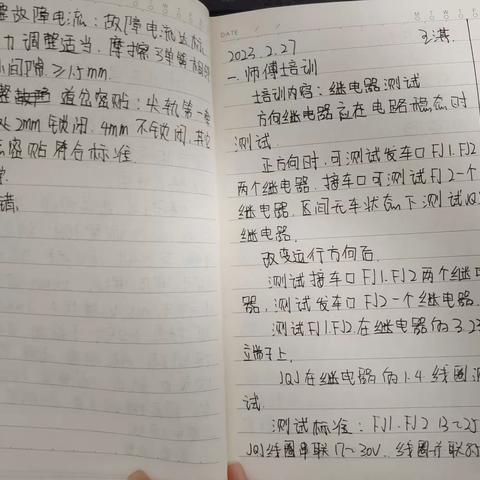 故障电流：故障电流达标
力调整适当，摩擦
间隙≥1.5mm.
道岔密贴：尖轨第一牵
2mm锁闭，4mm不锁闭，其它
密贴符合标准.
错.
DATE
2023.2.27
王淇.
一.师傅培训
培训内容：继电器测试
方向继电器应在电路稳态时
测试.
正方向时，可测试发车口FJ1.FJ2
两个继电器.接车口可测试FJ2一个
继电器.区间无车状态下测试JQJ
继电器.
改变运行方向后.
测试接车口FJ1.FJ2两个继电
器，测试发车口FJ2一个继电器.
测试FJ1.FJ2.在继电器的3.23
端子上.
JQJ在继电器的1.4.线圈测
试.
测试标准：FJ1.FJ2 13~25
JQJ线圈串联17~30V.线圈并联8.5